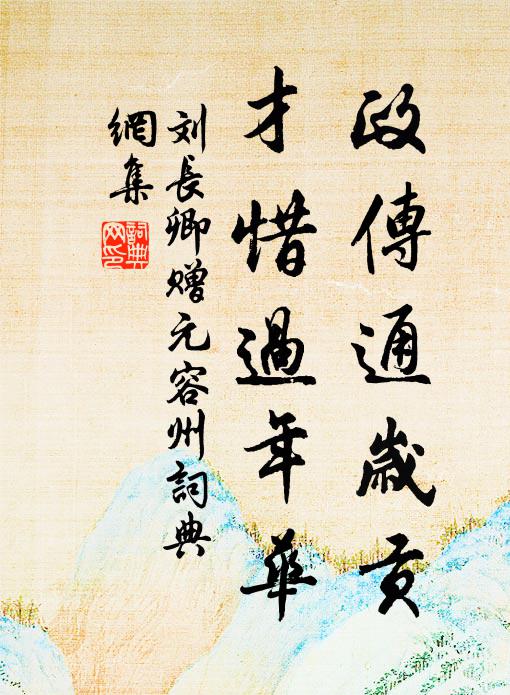 政傳通歲貢
才惜過年華
刘長卿赠元容州詞典
網集
詞典
网印